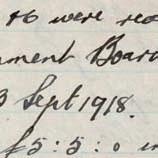 16 were rec
nment Board
3 Sept 1918.
£5:5:0 in